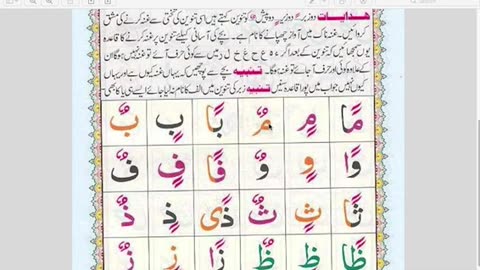 ھدایات دو زبر ً دو زیر ٍ دو پیش ٌ کو تنوین کہتے ہیں اسی تنوین کی تختی سے غنہ کی مشق
کروائیں۔ غنہ ناک میں آواز چھپانے کا نام ہے۔ بچے کی آسانی کیلئے تنوین پر غنہ کرنے کا قاعدہ
یوں سمجھائیں کہ تنوین کے بعد اگر ء ہ ع ح غ خ ل ر سے کوئی حرف آئے تو غنہ نہیں ہوگا ان
کے علاوہ کوئی اور حرف آجائے تو غنہ ہوگا۔ تنبیہ بچے سے پوچھیں۔ یہاں غنہ کیوں ہے اور یہاں
کیوں نہیں جواب میں پورا قاعدہ سنیں تنبیہ زبر کی تنوین میں الف کا نام نہ لیا جائے ایسے ہی یا کا بھی
مًا مٍ مٌ بًا بٍ بٌ
وًا وٍ وٌ فًا فٍ فٌ
ثًا ثٍ ثٌ ذًى ذٍ ذٌ
ظًا ظٍ ظٌ زًا زٍ زٌ